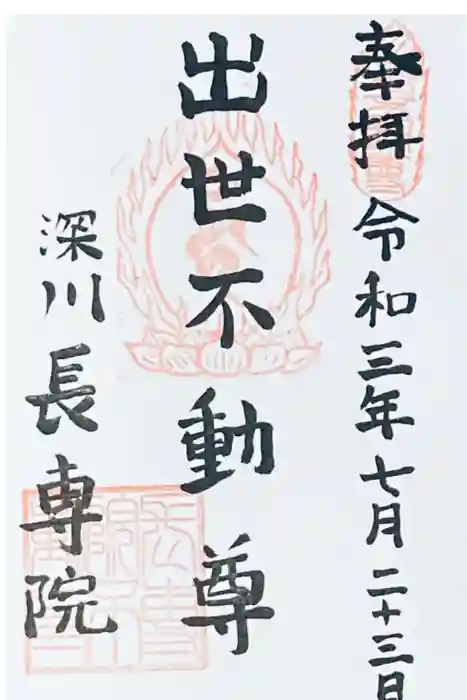 奉拝 令和三年七月二十三日
出世不動尊
深川 長専院